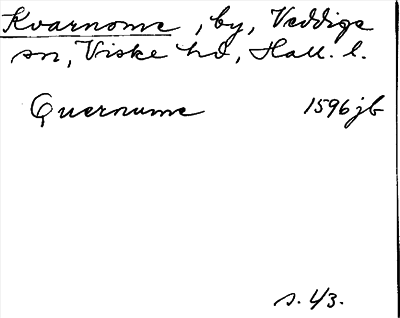 Kvarnome, by, Veddige
sn, Viske hd, Hall. l.
Quernume 1596 jb
s. 43.